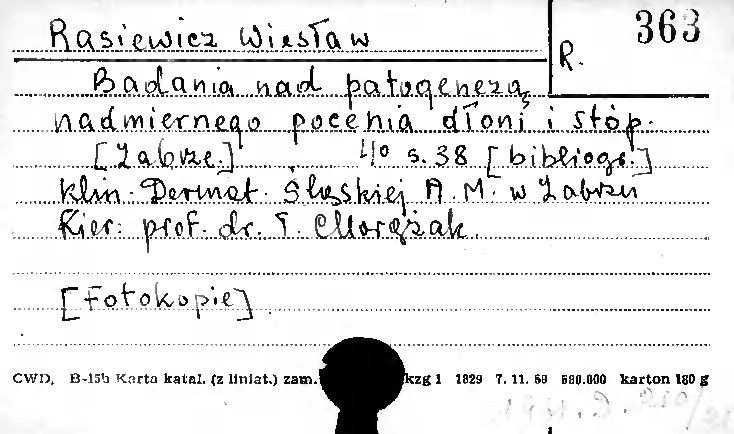 363
R.
Rasiewicz Wiesław
Badania nad patogenezą
nadmiernego pocenia dłoni i stóp.
[Zabrze.] 4° s. 38 [bibliogr.]
Klin. Dermat. Śląskiej A. M. w Zabrzu
Kier: prof. dr. T. Chorążak.
[Fotokopie]
CWD, B-15b Karta katal. (z liniat.) zam. kzg 1 1829 7. 11. 69 680.000 karton 180 g